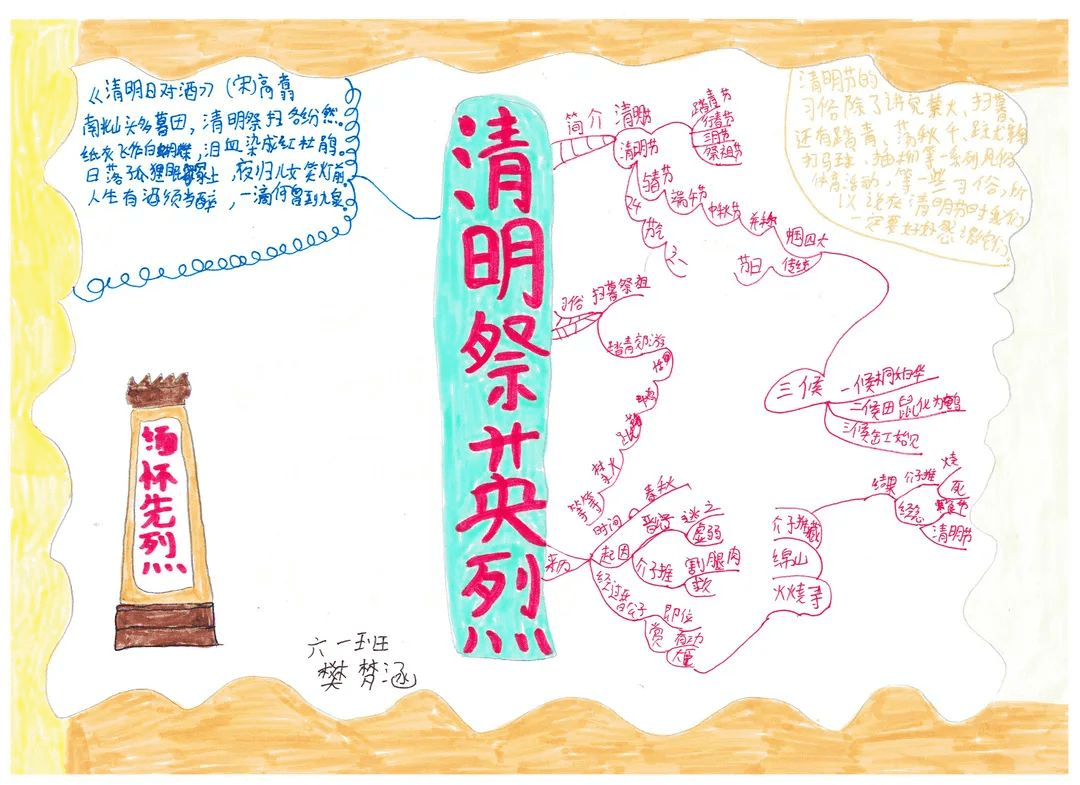 《清明日对酒》(宋)高翥
南北山头多墓田，清明祭扫各纷然。
纸灰飞作白蝴蝶，泪血染成红杜鹃。
日落狐狸眠冢上，夜归儿女笑灯前。
人生有酒须当醉，一滴何曾到九泉。
清明祭英烈
缅怀先烈
六一班
樊梦涵
简介
清明节
踏青节
行清节
三月节
祭祖节
清明节
与春节
端午节
中秋节
并称
中国四大
传统
节日
24
节气
之一
习俗
扫墓祭祖
踏青郊游
禁火
等等
来历
时间
春秋
起因
晋公子
逃亡
虚弱
介子推
割腿肉
救
经过
晋公子
即位
赏
有功
大臣
介子推藏
绵山
火烧寻
结果
介子推
烧
死
纪念
寒食节
清明节
三候
一候桐始华
二候田鼠化为鹌
三候虹始见
清明节的
习俗除了讲究禁火、扫墓
还有踏青、荡秋千、蹴鞠
打马球、插柳等一系列风俗
体育活动，等一些习俗，所
以说在清明节时我们
一定要好好感谢它们。